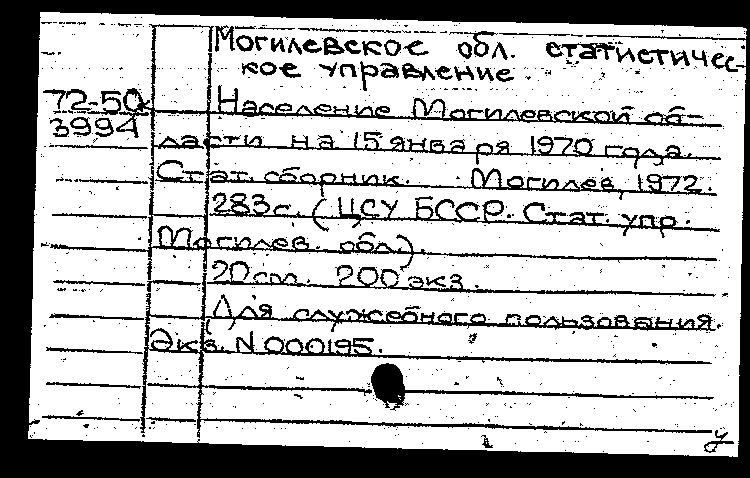 Могилевское обл. статистичес-
кое управление.
72-50к Население Могилевской об-
3994 ласти на 15 января 1970 года.
Стат. сборник. Могилев, 1972.
283с. (ЦСУ БССР. Стат. упр.
Могилев. обл.).
20см. 200 экз.
Для служебного пользования.
Экз. N 000195.
у